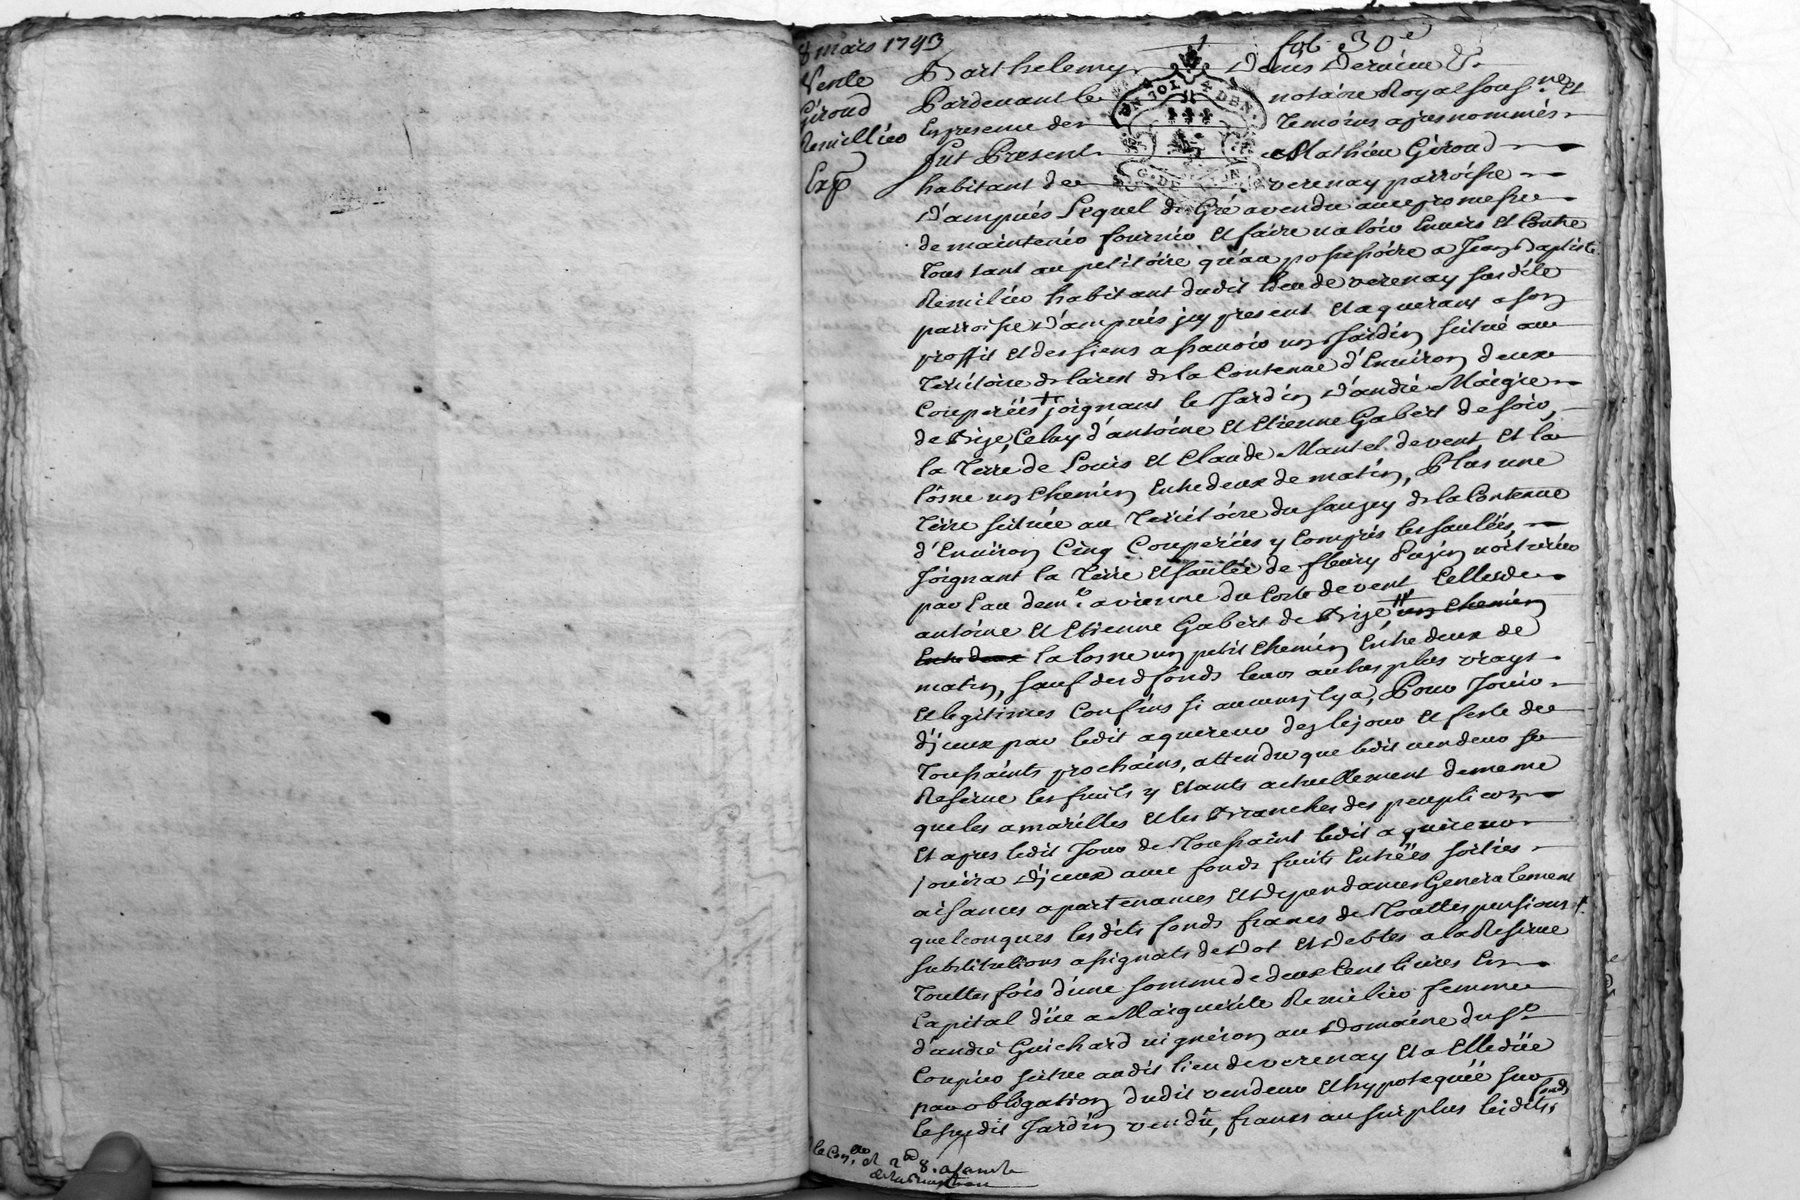 8 mars 1793
fol. 30e
Vente
Giroud
Remillieu
Exp
Barthelemy Denis Dervieu &.
Pardevant le notaire Royal sousne. et
En presence des Temoins apres nommés.
fut Present Mathieu Giroud
habitant de verenay parroisse
d'ampuis Lequel de Gré a vendu avec promesse
de maintenir fournir et faire valoir Envers et Contre
Tous tant au petitoire qu'au possessoire a Jean Baptiste
Remilieu habitant dudit lieu de verenay susdite
parroisse d'ampuis jcy present et aquerant a son
proffit et des siens a sçavoir un Jardin scitué au
Territoire de la contenue d'Environ deux
Couperées + joignant le Jardin d'andré Maigre
de Bize, Celuy d'antoine et Etienne Gabert de soir,
la Terre de Louis et Claude Mantel de vent et la
losne un chemin Entredeux de matin, Plus une
Terre scituée au Territoire du sauzey de la Contenue
d'Environ Cinq Couperées y Compris les saulées
Joignant la Terre et saulée de fleury
par Eau a vienne du Coté de vent Celle de
antoine et Etienne Gabert de Bize un chemin
Entredeux la losne un petit chemin Entredeux de
matin, sauf desd fonds leurs autres plus vrays
et legitimes Confins si aucuns il y a, Pour Jouir
d'jceux par ledit aquereur dez le jour et feste de
Toussaints prochains, attendu que ledit vendeur se
Reserve les fruits y etants actuellement de meme
que les amarilles et les Branches des peupliers
Et apres ledit Jour de Toussaint ledit aquereur
jouira d'jceux avec fonds fruits Entrées sorties
aisances apartenances et dependances Generalement
quelconques lesdits fonds francs de Touttes pensions
substitutions assignats de Dot et Debtes a la Reserve
Touttes fois d'une somme de deux Cent livres En
Capital düe a Marguerite Remilieu femme
d'andré Guichard vigneron au Domaine du sr
Coupier scitué audit lieu de verenay et a Elle düe
par obligation dudit vendeur et hypotequée sur
le susdit Jardin vendü, francs au surplus lesdits fonds